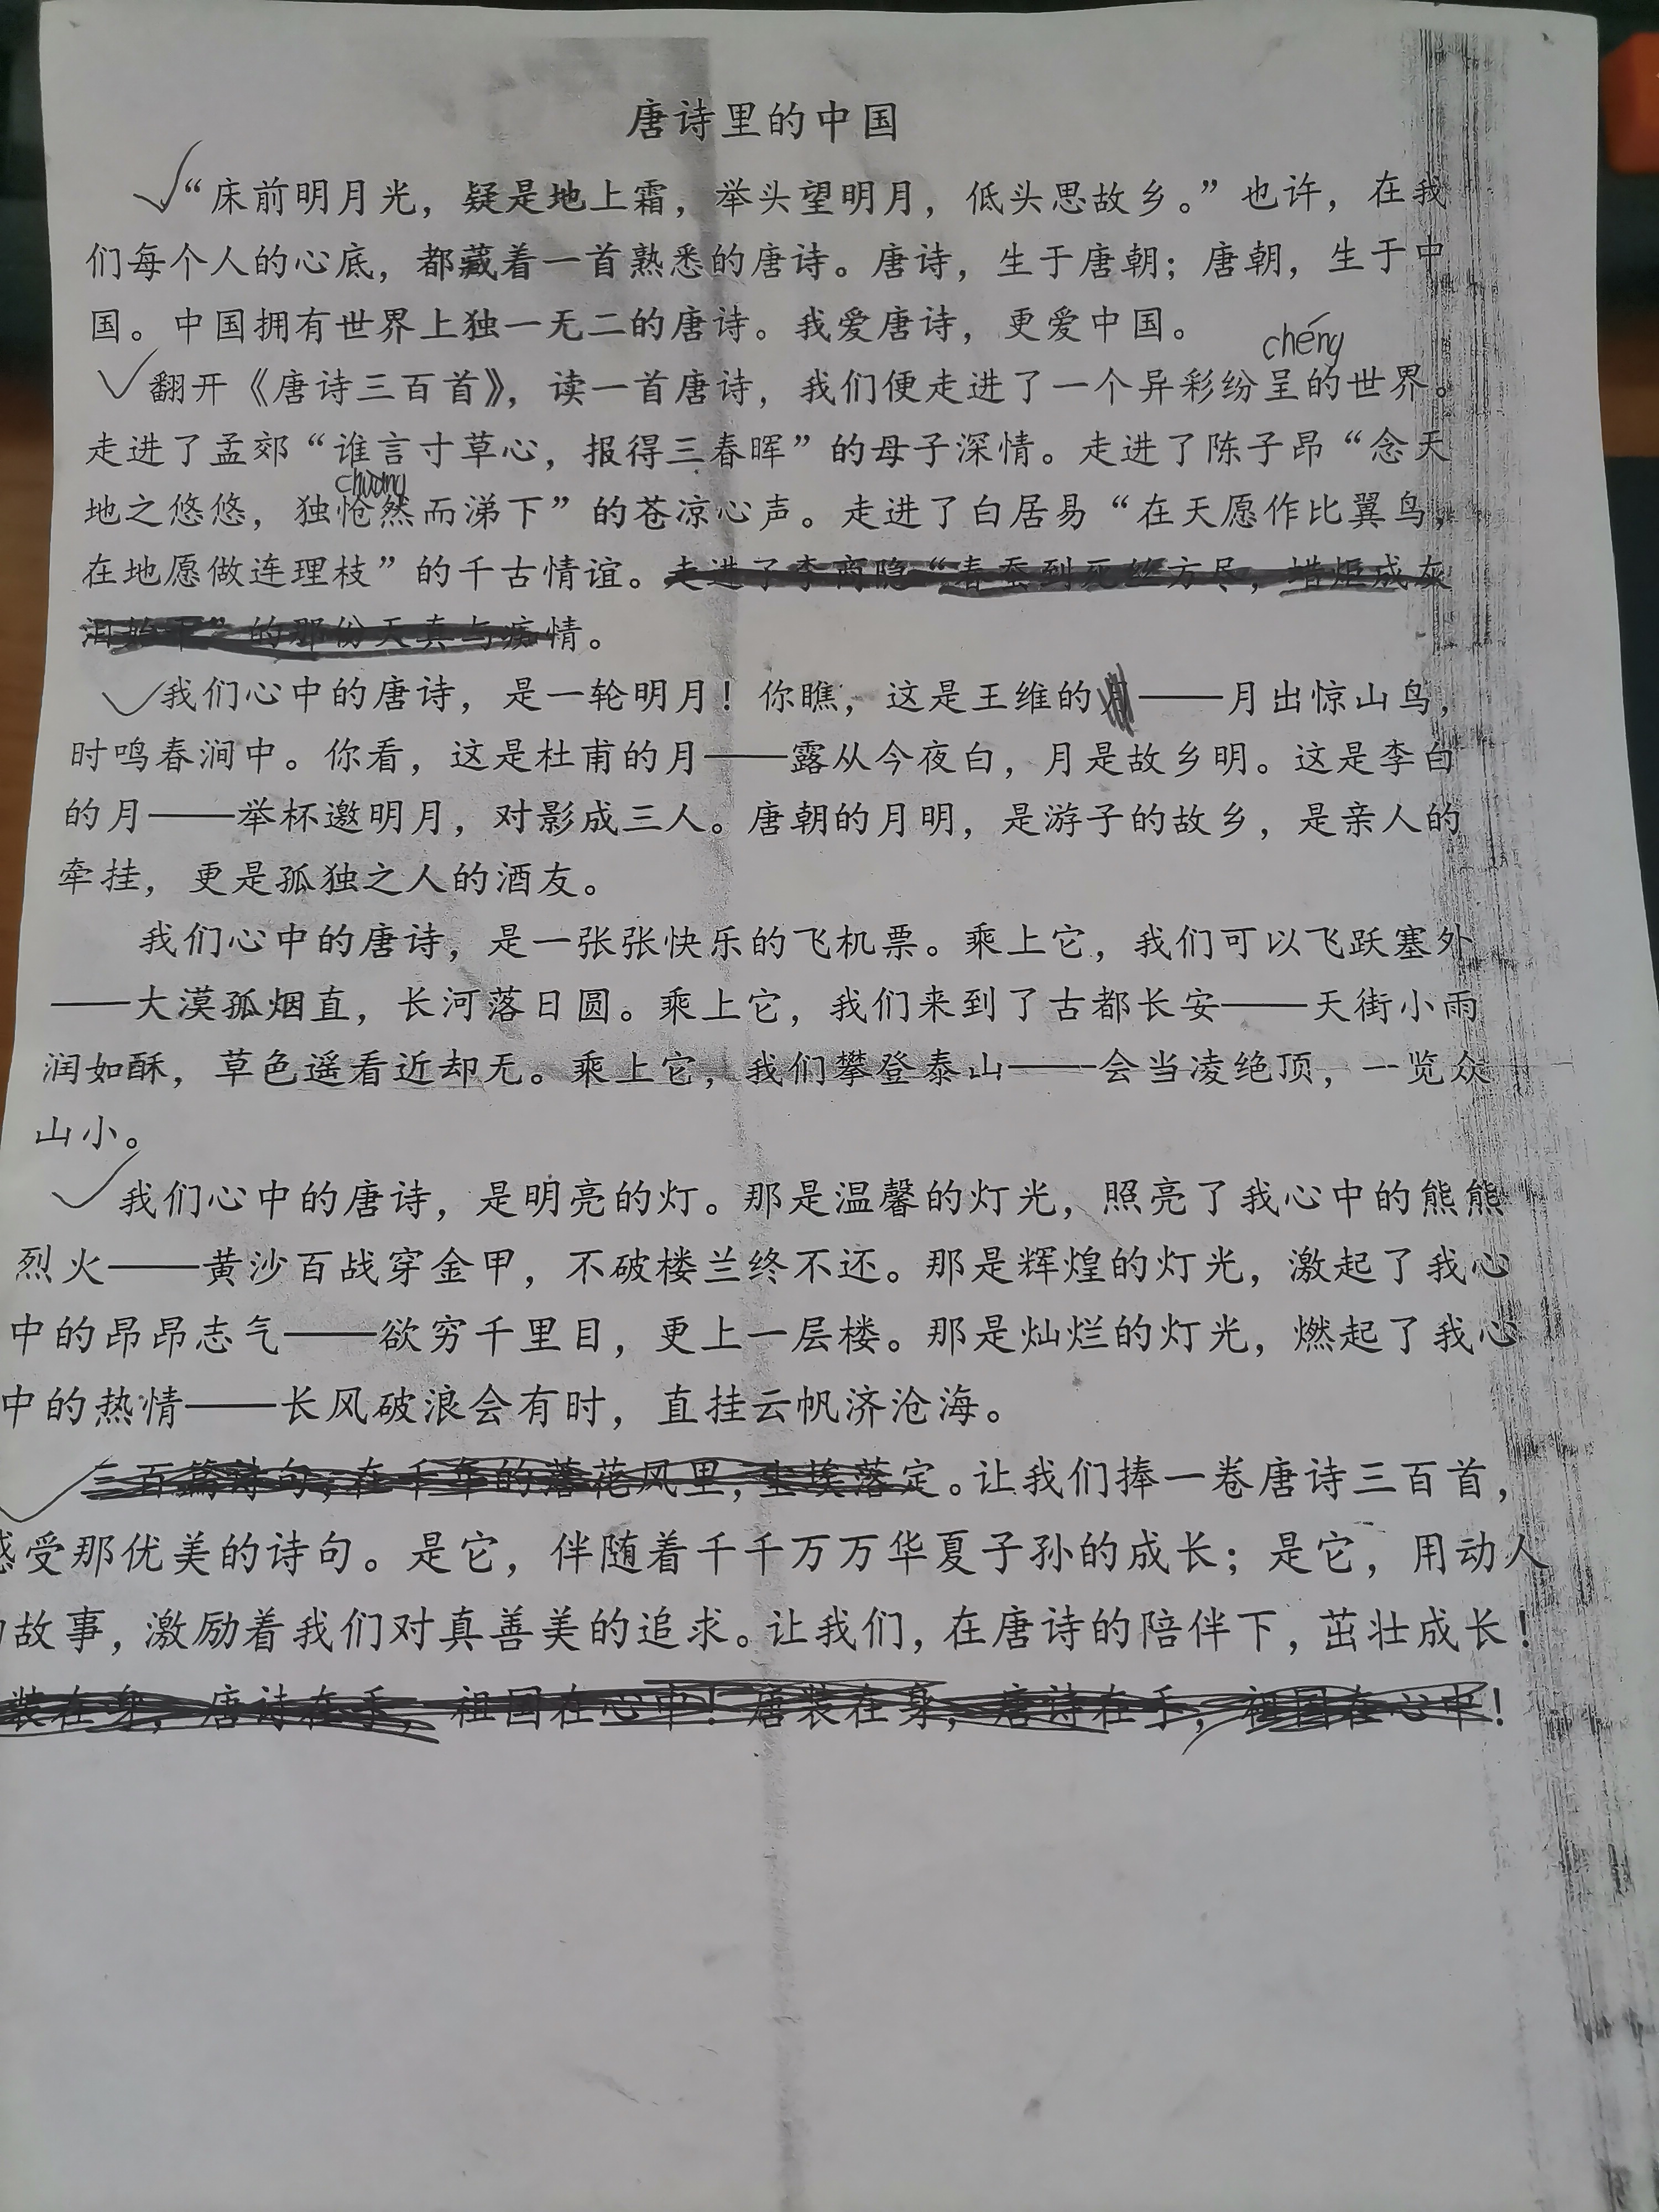 唐诗里的中国
“床前明月光，疑是地上霜，举头望明月，低头思故乡。”也许，在我
们每个人的心底，都藏着一首熟悉的唐诗。唐诗，生于唐朝；唐朝，生于中
国。中国拥有世界上独一无二的唐诗。我爱唐诗，更爱中国。
chéng
翻开《唐诗三百首》，读一首唐诗，我们便走进了一个异彩纷呈的世界。
走进了孟郊“谁言寸草心，报得三春晖”的母子深情。走进了陈子昂“念天
chuàng
地之悠悠，独怆然而涕下”的苍凉心声。走进了白居易“在天愿作比翼鸟，
在地愿做连理枝”的千古情谊。走进了李商隐“春蚕到死丝方尽，蜡炬成灰
泪始干”的那份天真与痴情。
我们心中的唐诗，是一轮明月！你瞧，这是王维的——月出惊山鸟，
时鸣春涧中。你看，这是杜甫的月——露从今夜白，月是故乡明。这是李白
的月——举杯邀明月，对影成三人。唐朝的月明，是游子的故乡，是亲人的
牵挂，更是孤独之人的酒友。
我们心中的唐诗，是一张张快乐的飞机票。乘上它，我们可以飞跃塞外
——大漠孤烟直，长河落日圆。乘上它，我们来到了古都长安——天街小雨
润如酥，草色遥看近却无。乘上它，我们攀登泰山——会当凌绝顶，一览众
山小。
我们心中的唐诗，是明亮的灯。那是温馨的灯光，照亮了我心中的熊熊
烈火——黄沙百战穿金甲，不破楼兰终不还。那是辉煌的灯光，激起了我心
中的昂昂志气——欲穷千里目，更上一层楼。那是灿烂的灯光，燃起了我心
中的热情——长风破浪会有时，直挂云帆济沧海。
三百篇诗句；在千年的落花风里，尘埃落定。让我们捧一卷唐诗三百首，
感受那优美的诗句。是它，伴随着千千万万华夏子孙的成长；是它，用动人
的故事，激励着我们对真善美的追求。让我们，在唐诗的陪伴下，茁壮成长！
装在身，唐诗在手，祖国在心中！唐装在身，唐诗在手，祖国在心中！